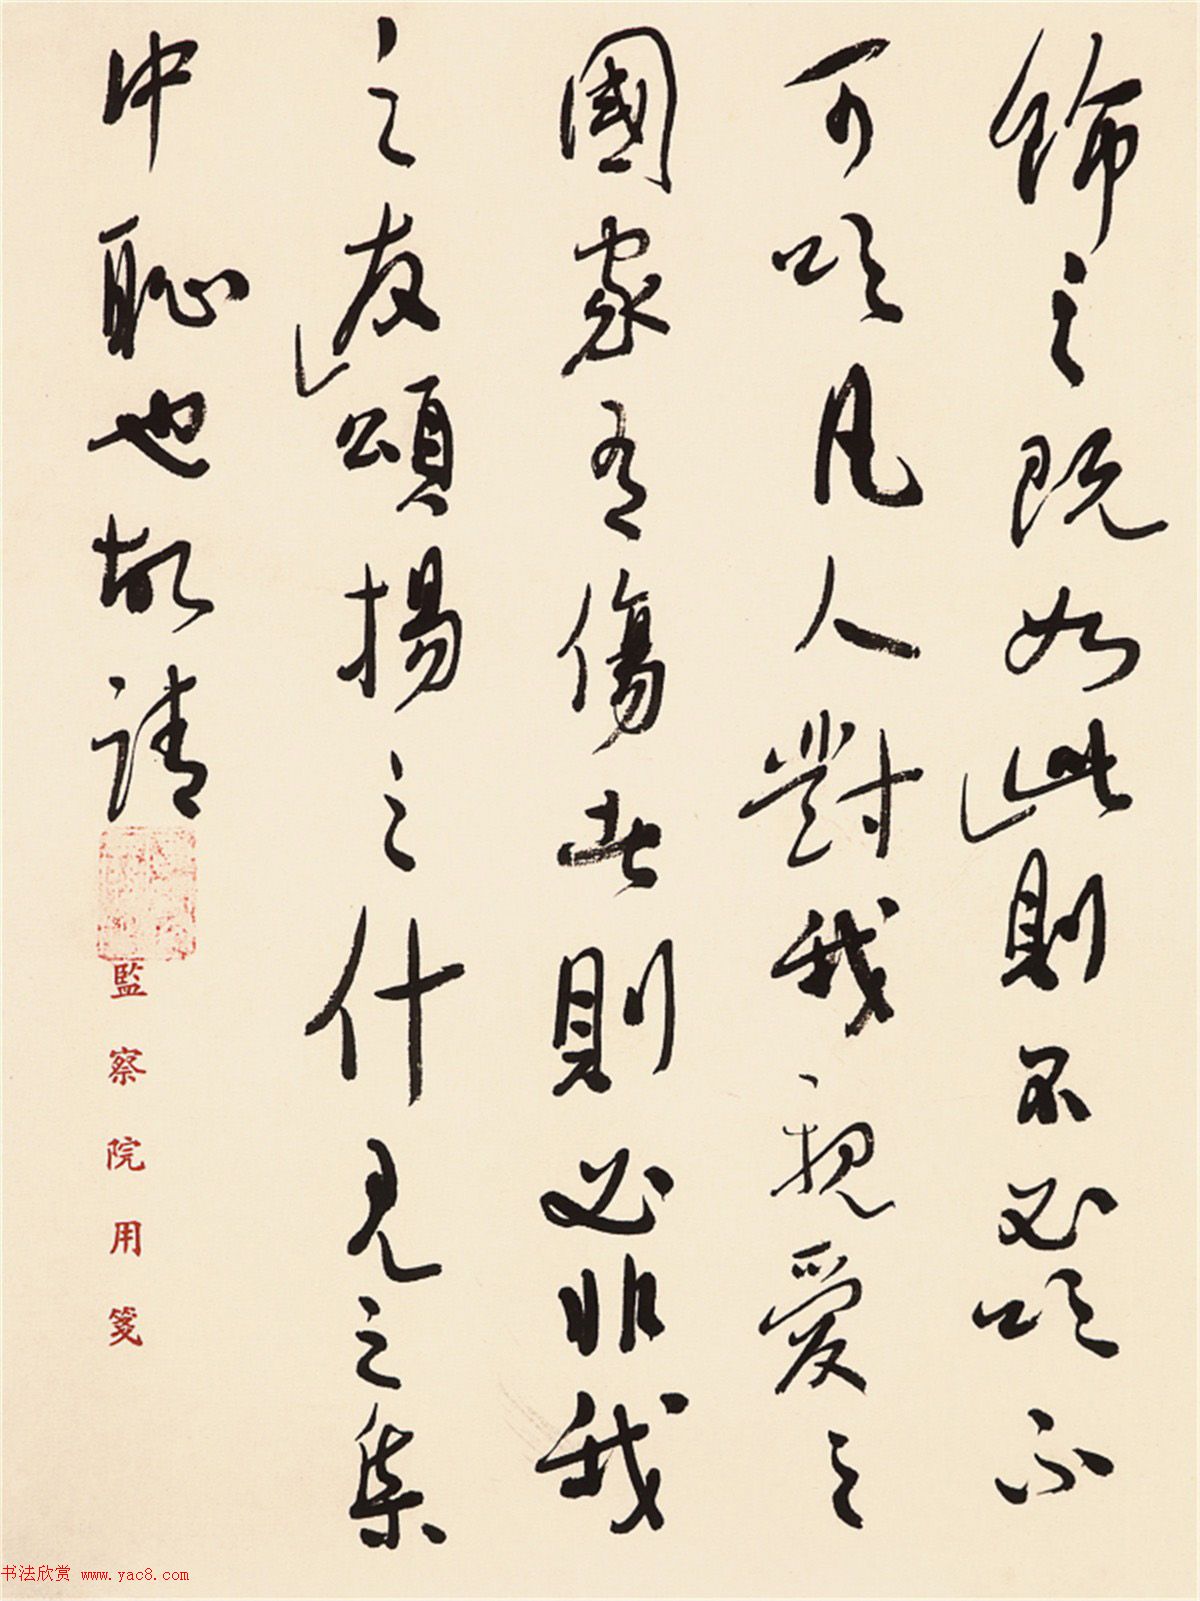 飾之既如此則不必頌不
可頌凡人對我親愛之
國家有傷者則必非我
之友頌揚之什見之集
中恥也故請
監察院用箋
书法欣赏 www.yac8.com